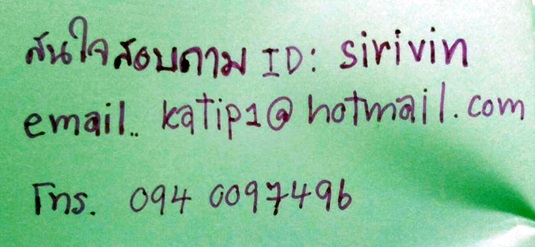 สนใจสอบถาม ID: sirivin
email.. katip1@hotmail.com
โทร. 094 0097496